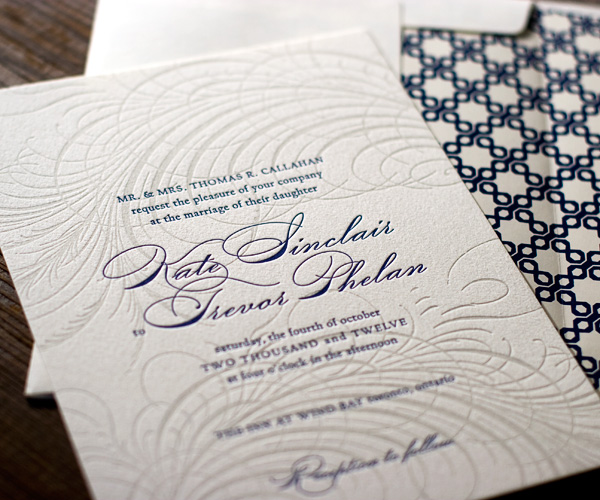 MR. & MRS. THOMAS R. CALLAHAN
request the pleasure of your company
at the marriage of their daughter
Kate Sinclair
to Trevor Phelan
saturday, the fourth of october
TWO THOUSAND and TWELVE
at four o'clock in the afternoon
THE INN AT WIND BAY toronto, ontario
Reception to follow